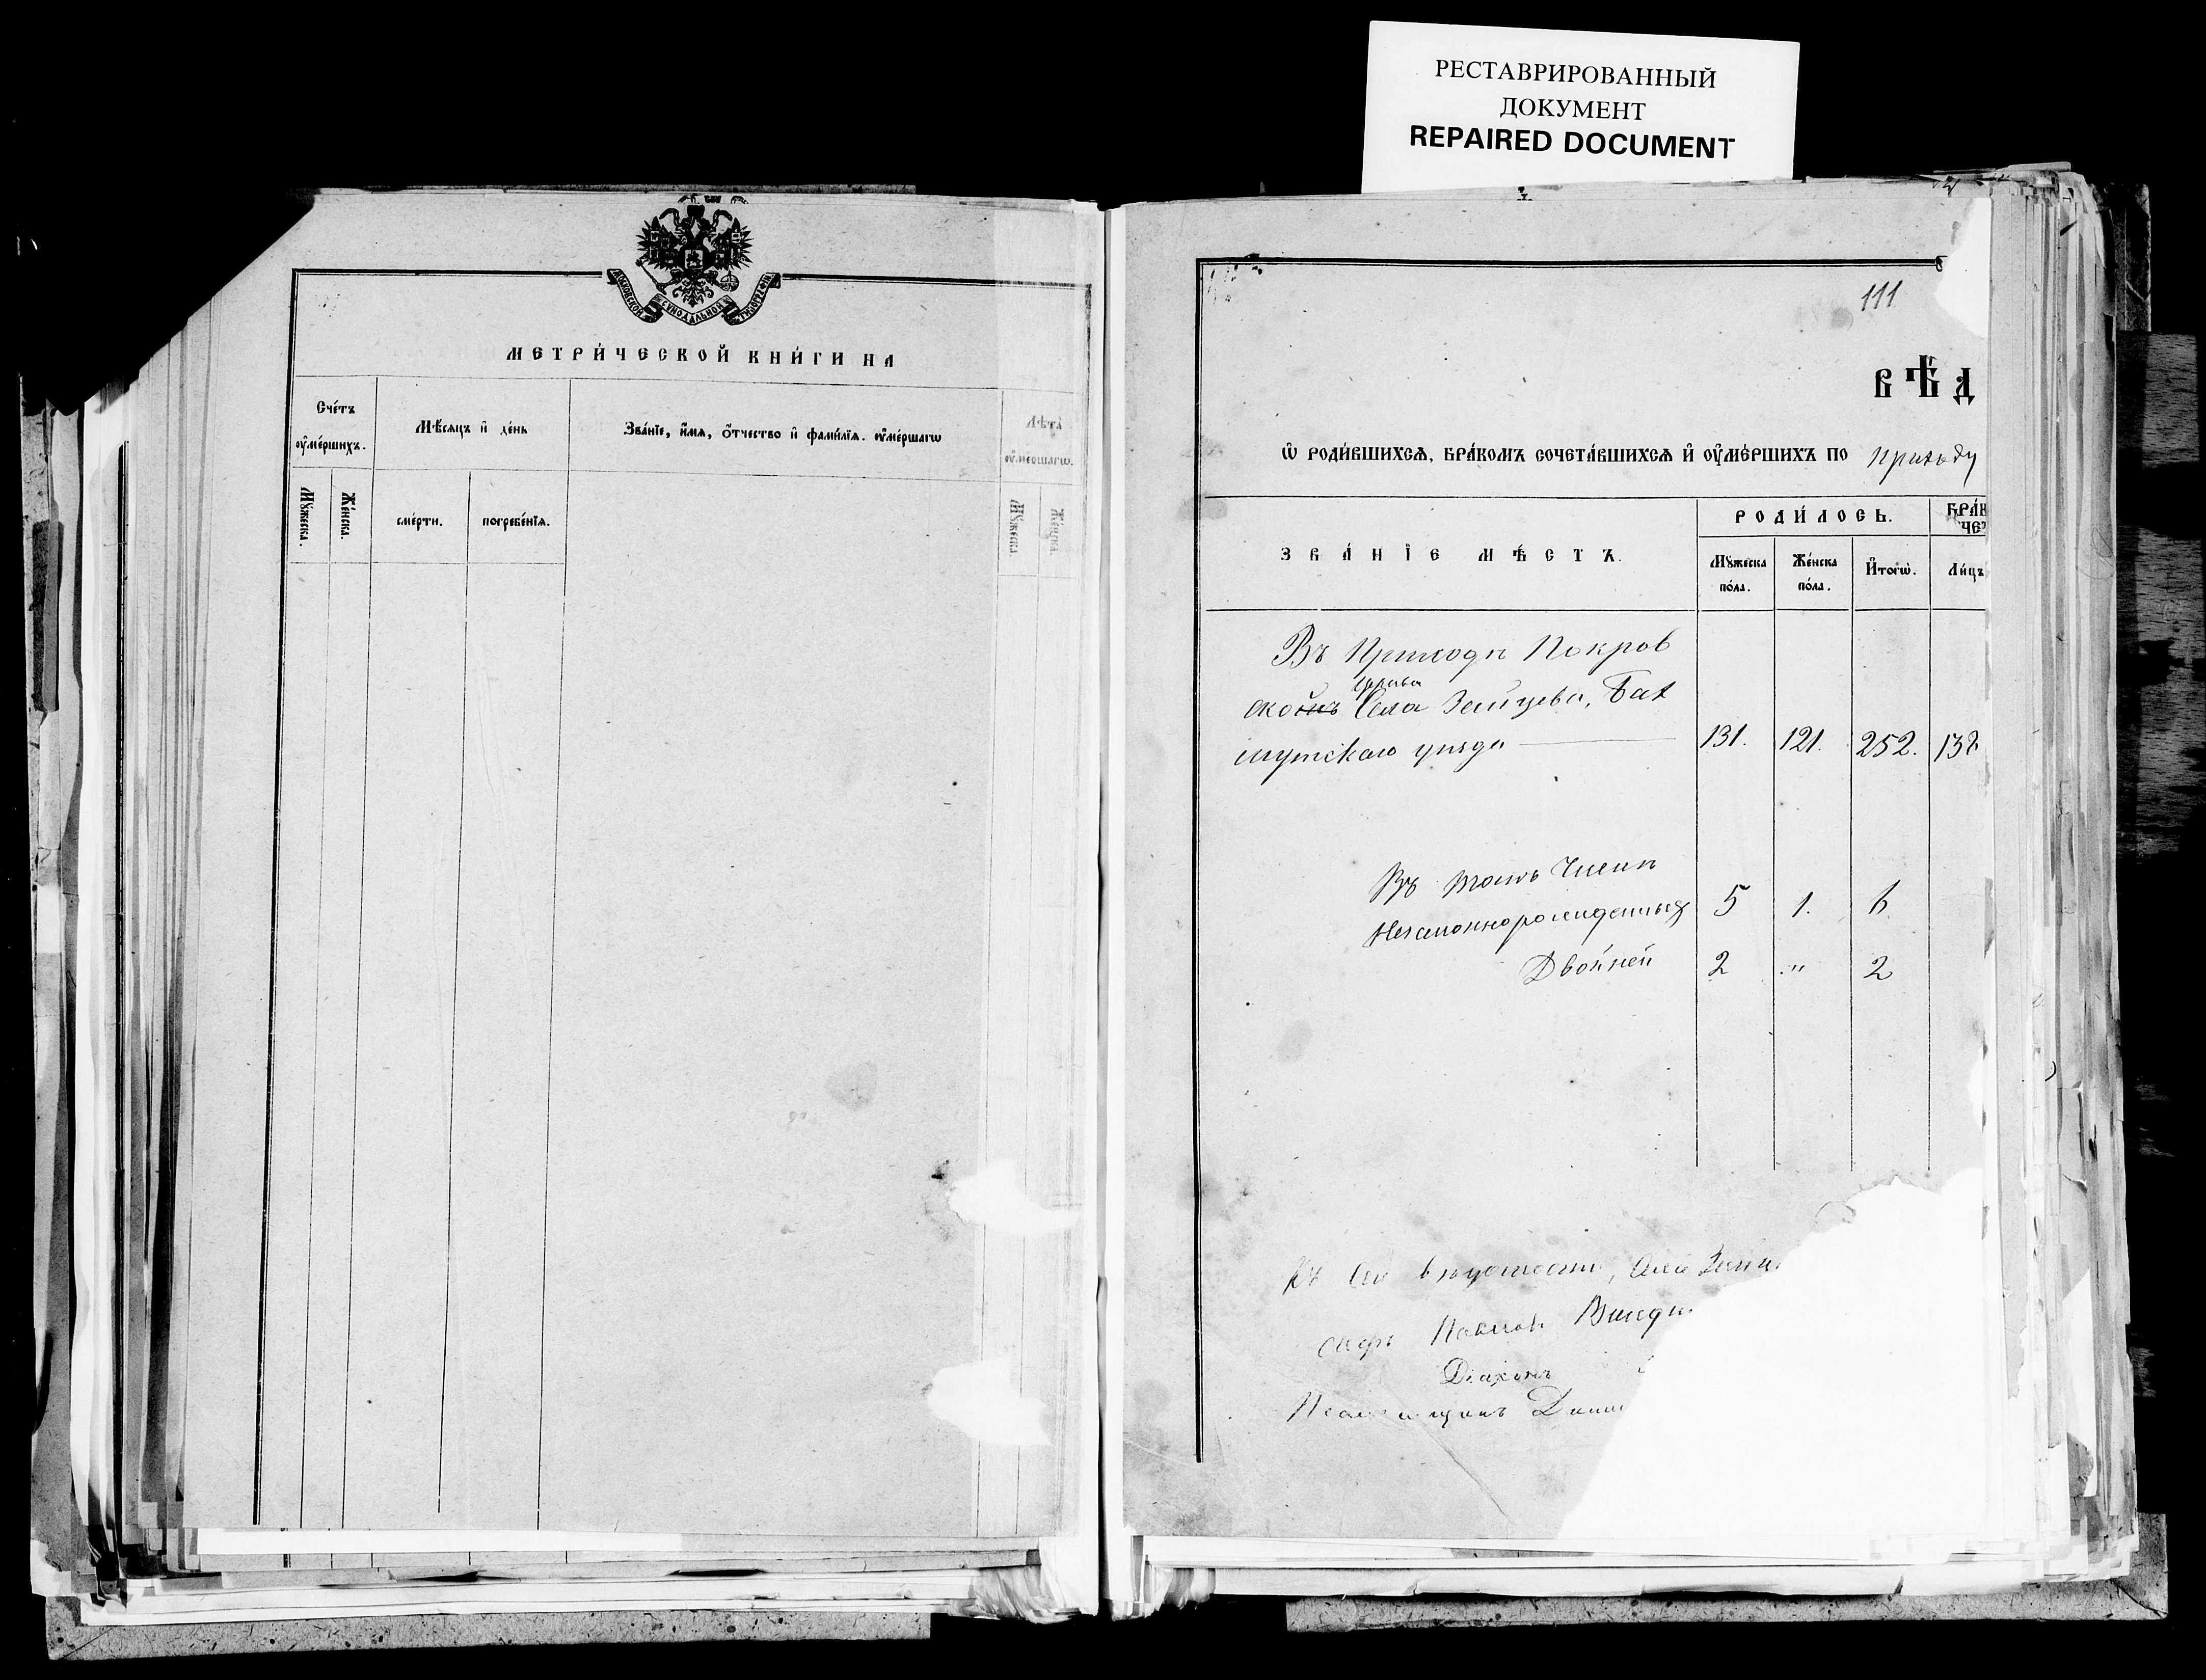 РЕСТАВРИРОВАННЫЙ
ДОКУМЕНТ
REPAIRED DOCUMENT
МОСКОВСКОЙ СѴНОДАЛЬНОЙ ТИПОГРАФІИ
МЕТРИ́ЧЕСКОЙ КНИ́ГИ НА
Сче́тъ
ᲂу҆ме́ршихъ.
Мѣ́сяцъ и҆ де́нь
Зва́нїе, и҆́мя, ѻ҆́тчество и҆ фами́лїя. ᲂу҆ме́ршагѡ
Лѣ́та
ᲂу҆ме́ршагѡ.
Мꙋ́жеска.
Же́нска.
сме́рти.
погребе́нїя.
Мꙋ́жеска.
Же́нска.
111
ВѢ́Д
Ѡ҆ РОДИ́ВШИХСѦ, БРА́КОМЪ СОЧЕТА́ВШИХСѦ И҆ ОУ҆МЕ́РШИХЪ ПО Приходу
ЗВА́НЇЕ МѢ́СТЪ.
РОДИ́ЛОСЬ.
БРА́К
ЧЕТ
Мꙋ́жеска
по́ла.
Же́нска
по́ла.
И҆того̀.
Ли́цъ
Въ Приходѣ Покров
ской Села Зайцева, Бах
мутскаго уѣзда 131. 121. 252. 138
Въ томъ Числѣ
Незаконнорожденныхъ 5 1. 6
Двойней 2 " 2
Къ сей вѣдомости, села Зайц
Діаконъ
Псаломщикъ